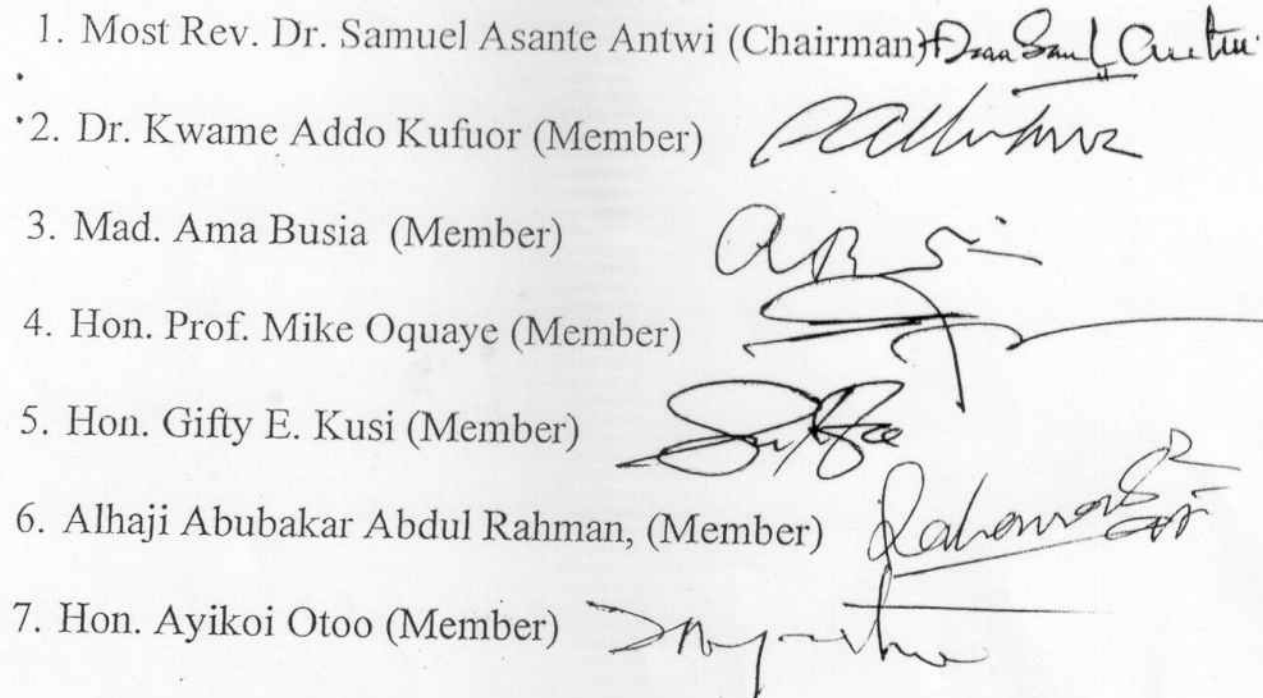 1. Most Rev. Dr. Samuel Asante Antwi (Chairman)
2. Dr. Kwame Addo Kufuor (Member)
3. Mad. Ama Busia (Member)
4. Hon. Prof. Mike Oquaye (Member)
5. Hon. Gifty E. Kusi (Member)
6. Alhaji Abubakar Abdul Rahman, (Member)
7. Hon. Ayikoi Otoo (Member)